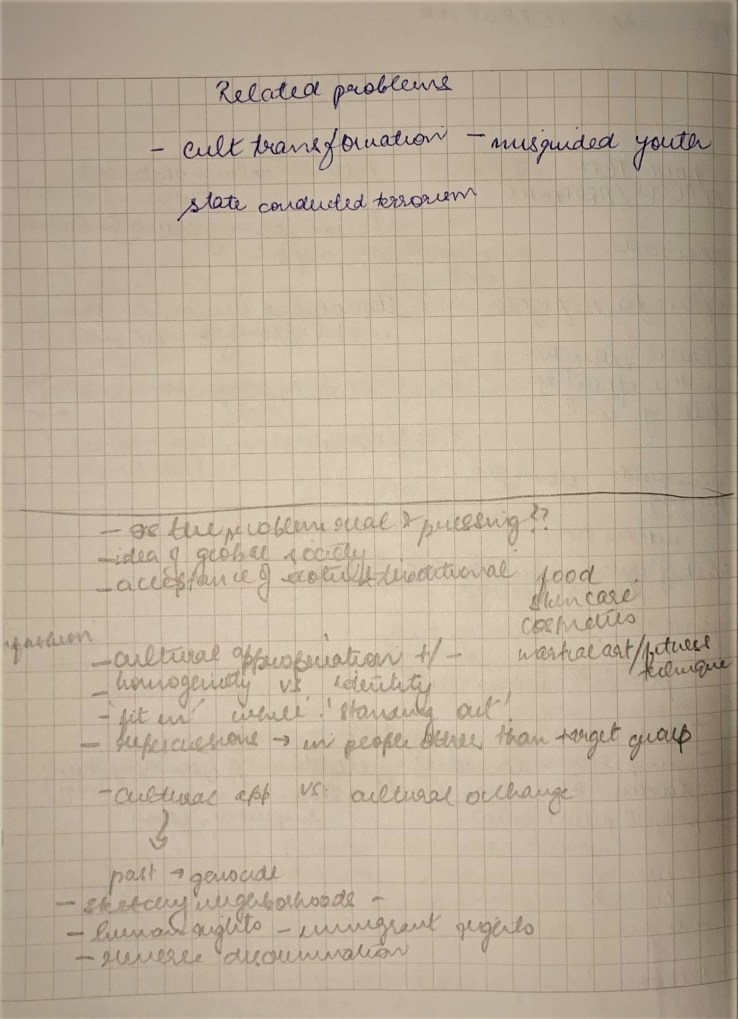 Related problems
- cult transformation - misguided youth
state conducted terrorism
- Is the problem real & pressing??
- idea of global society
- acceptance of exotic & traditional food
skin care
cosmetics
fashion
- cultural appropriation +/- martial art/fitness
technique
- homogenity vs identity
- 'fit in' while 'standing out'
- repercussions → in people other than target group
- cultural app vs. cultural exchange
past → genocide
- sketchy neighborhoods -
- human rights - immigrant rights
- reverse discrimination